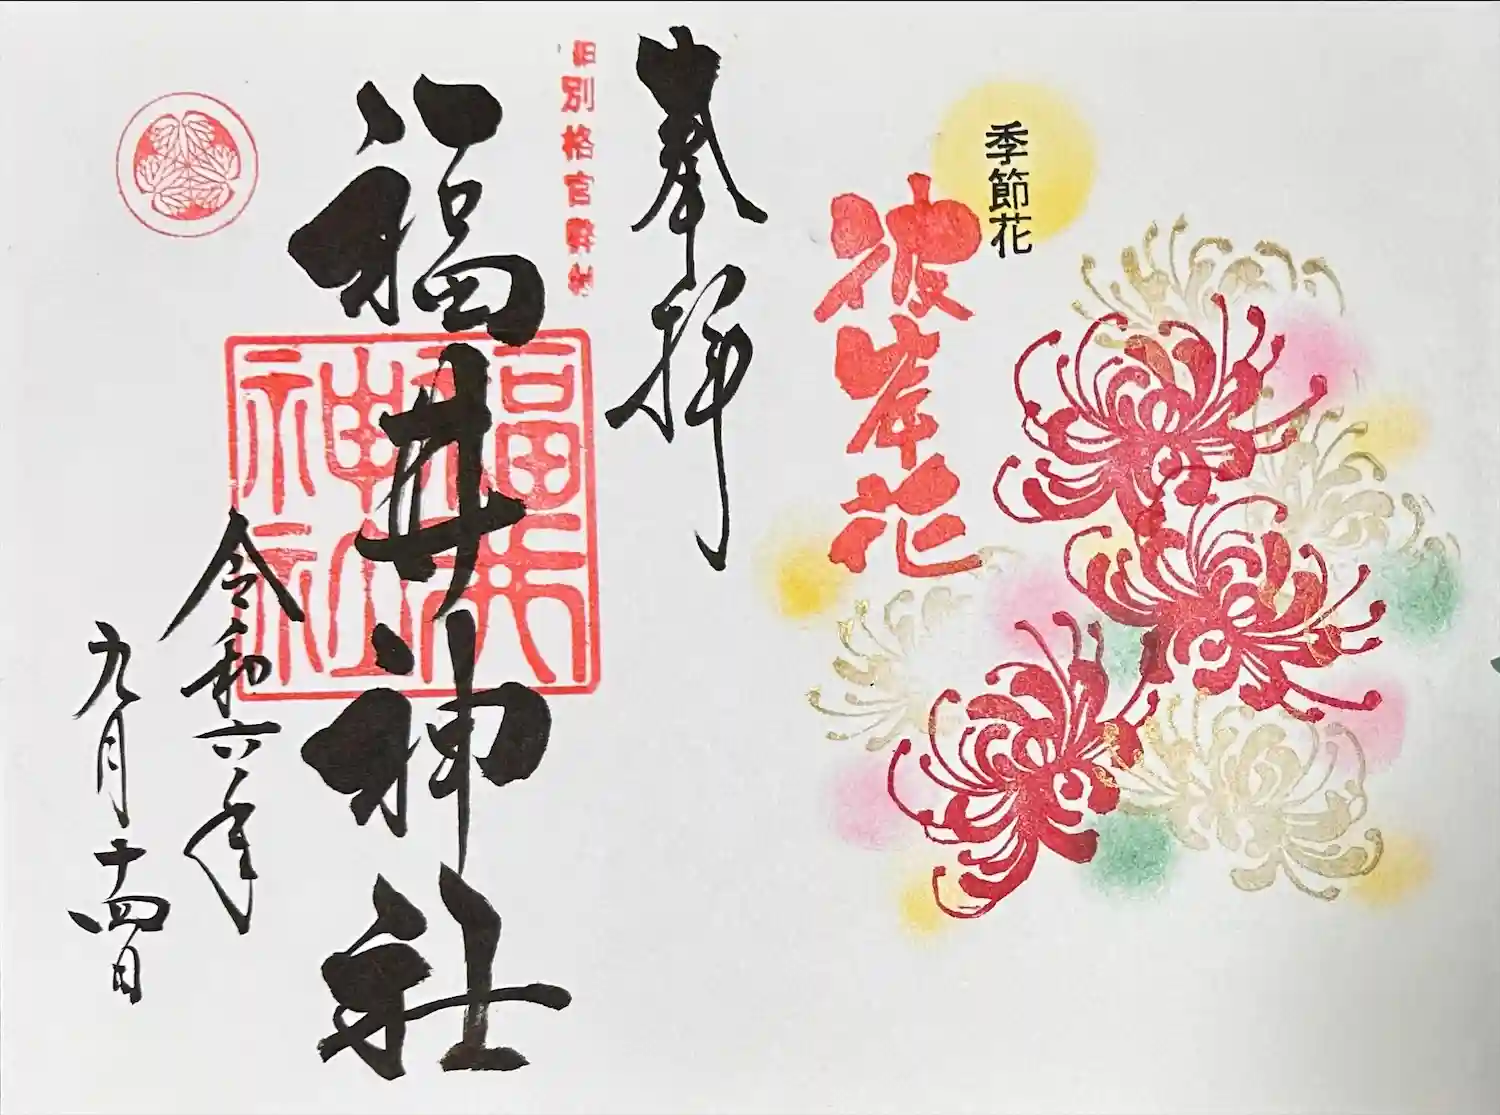 季節花
彼岸花
奉拝
旧別格官幣社
福井神社
福井神社
令和六年
九月十四日